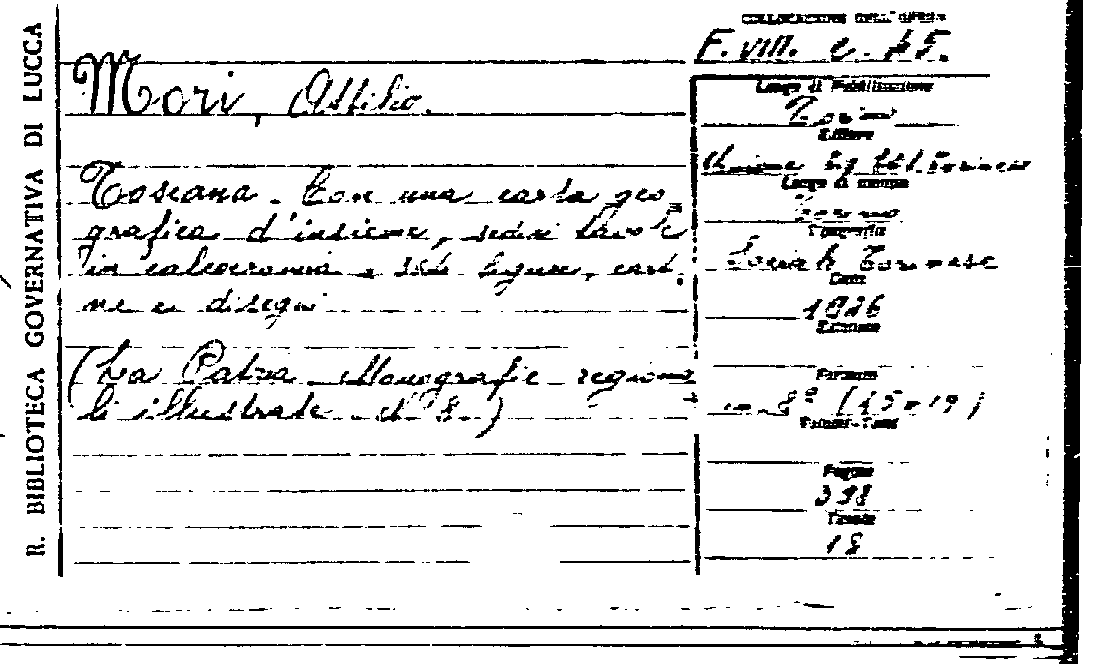 R. BIBLIOTECA GOVERNATIVA DI LUCCA
COLLOCAZIONE DELL'OPERA
F. VIII. e. 45.
Mori, Attilio.
Toscana. Con una carta geo-
grafica d'insieme, sedici tavole
in calcocromia e figure, carti-
ne e disegni
(La Patria. Monografie regiona-
li illustrate. N. 8.)
Luogo di Pubblicazione
Torino
Editore
Unione Tip. Ed. Torinese
Luogo di stampa
Torino
Tipografia
Sociale Torinese
Data
1926
Edizione
Formato
in 8º
Volumi-Tomi
Pagine
398
Tavole
18